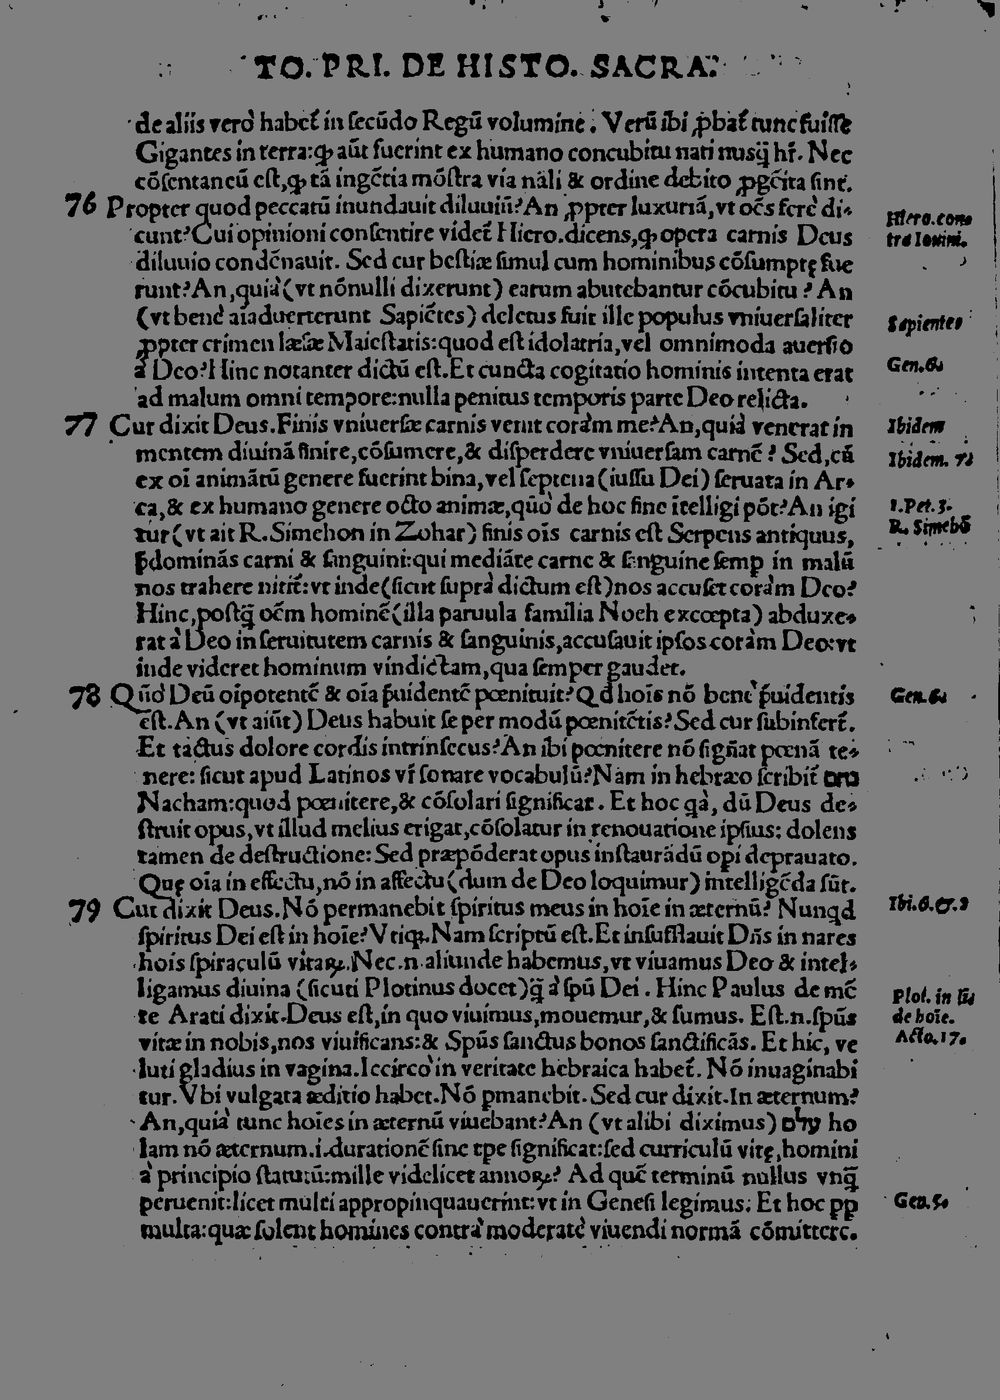 TO. PRI. DE HISTO. SACRA.
de aliis verò habet̃ in secũdo Regũ volumine. Verũ ibi ꝓbat̃ tunc fuisse
Gigantes in terra: ꝙ aũt fuerint ex humano concubitu nati nusq̃ hr̃. Nec
cõsentaneũ est, ꝙ tã ingẽtia mõstra via nãli & ordine debito ꝓgẽita sint.
76 Propter quod peccatũ inundauit diluuiũ? An ꝓpter luxuriã, vt oẽs ferè di-
Hiero. con-
cunt? Cui opinioni consentire videt̃ Hiero. dicens, ꝙ opera carnis Deus
tra Iouini.
diluuio condẽnauit. Sed cur bestiæ simul cum hominibus cõsumptę fue
runt? An, quià (vt nõnulli dixerunt) earum abutebantur cõcubitu? An
(vt benè aiaduerterunt Sapiẽtes) deletus fuit ille populus vniuersaliter
Sapientes
ꝓpter crimen læsæ Maiestatis: quod est idolatria, vel omnimoda auersio
à Deo? Hinc notanter dictũ est. Et cuncta cogitatio hominis intenta erat
Gen. 6.
ad malum omni tempore: nulla penitus temporis parte Deo relicta.
77 Cur dixit Deus. Finis vniuersæ carnis venit coràm me? An, quià venerat in
Ibidem
mentem diuinã finire, cõsumere, & disperdere vniuersam carnẽ? Sed, cũ
Ibidem. 7.
ex oi animãtũ genere fuerint bina, vel septena (iussu Dei) seruata in Ar-
ca, & ex humano genere octo animæ, qũo de hoc fine ĩtelligi põt? An igi
1. Pet. 3.
tur (vt ait R. Simehon in Zohar) finis ois carnis est Serpens antiquus,
R. Simehõ
p̃dominãs carni & sanguini: qui mediãte carne & sanguine semꝑ in malũ
nos trahere nitit̃: vt inde (sicut suprà dictum est) nos accuset coràm Deo?
Hinc, postq̃ oẽm hominẽ (illa paruula familia Noeh excœpta) abduxe-
rat à Deo in seruitutem carnis & sanguinis, accusauit ipsos coràm Deo: vt
inde videret hominum vindictam, qua semper gaudet.
78 Qũo Deũ oipotentẽ & oĩa p̃uidentẽ pœnituit? Qd hois nõ benè p̃uidentis
Gen. 6.
est. An (vt aiũt) Deus habuit se per modũ pœnitẽtis? Sed cur subinfert̃.
Et tactus dolore cordis intrinsecus? An ibi pœnitere nõ sign̄at pœnã te-
nere: sicut apud Latinos vr̃ sonare vocabulũ? Nam in hebræo scribit̃ נחם
Nacham: quod pœnitere, & cõsolari significat. Et hoc qà, dũ Deus de-
struit opus, vt illud melius erigat, cõsolatur in renouatione ipsius: dolens
tamen de destructione: Sed præpõderat opus instaurãdũ opi deprauato.
Quę oia in effectu, nõ in affectu (dum de Deo loquimur) intelligẽda sũt.
79 Cur dixit Deus. Nõ permanebit spiritus meus in hoie in æternũ? Nunqd
Ibi. 6. & 2
spiritus Dei est in hoie? Vtiqꝫ. Nam scriptũ est. Et insufflauit Dñs in nares
hois spiraculũ vitaꝝ. Nec .n. aliunde habemus, vt viuamus Deo & intel-
ligamus diuina (sicuti Plotinus docet) q̃ à spũ Dei. Hinc Paulus de mẽ
Plot. in li.
te Arati dixit. Deus est, in quo viuimus, mouemur, & sumus. Est .n. spũs
de hoie.
vitæ in nobis, nos viuificans: & Spũs sanctus bonos sanctificãs. Et hic, ve
Acto. 17.
luti gladius in vagina. Iccircò in veritate hebraica habet̃. Nõ inuaginabi
tur. Vbi vulgata æditio habet. Nõ ꝑmanebit. Sed cur dixit. In æternum?
An, quià tunc hoies in æternũ viuebant? An (vt alibi diximus) עולם ho
lam nõ æternum .i. durationẽ sine tpe significat: sed curriculũ vitę, homini
à principio statutũ: mille videlicet annoꝝ? Ad quẽ terminũ nullus vnq̃
peruenit: licet multi appropinquauerint: vt in Genesi legimus: Et hoc ꝓp
Gen. 5.
multa: quæ solent homines contrà moderatè viuendi normã cõmittere.